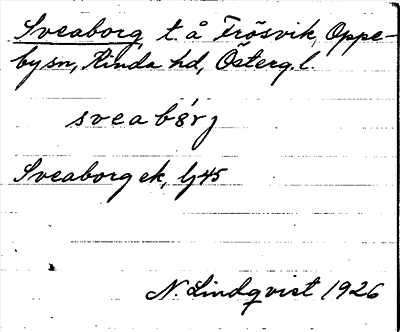 Sveaborg t. å Frösvik, Oppe-
by sn, Kinda hd, Österg. l.
Sveaborg ek, lj 45
N. Lindqvist 1926